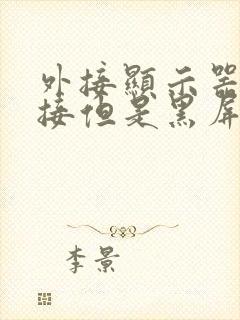 外接顯示器
接但是黑屏
李景